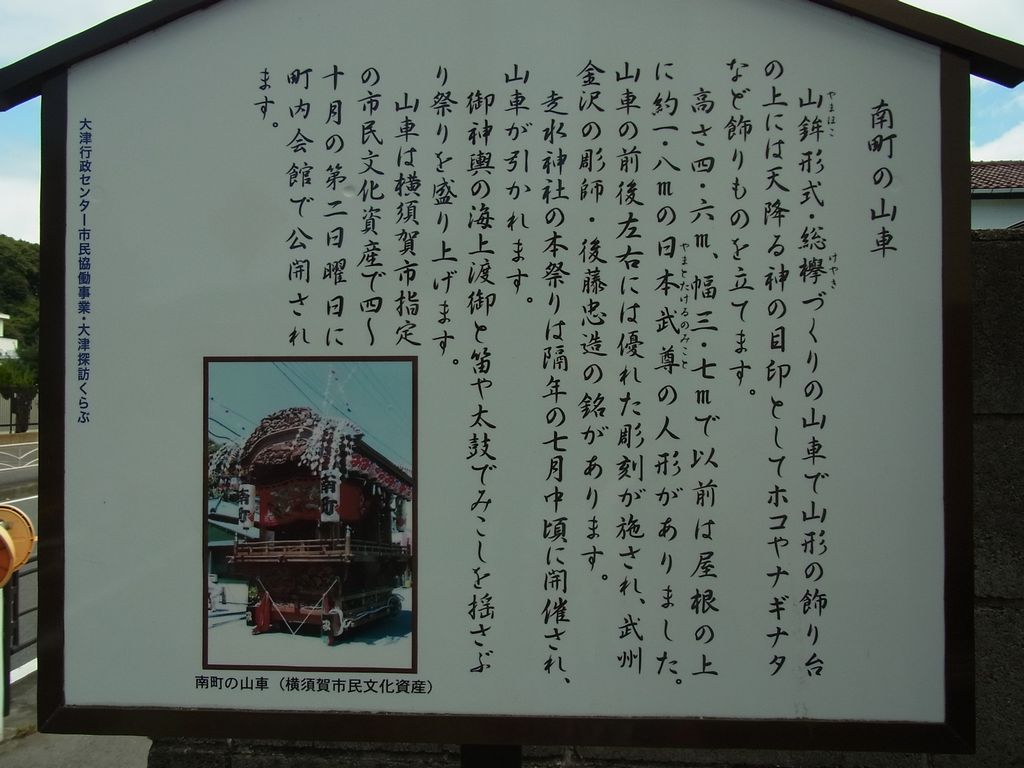 南町の山車
山鉾形式・総欅づくりの山車で山形の飾り台
やまほこ
けやき
の上には天降る神の目印としてホコやナギナタ
など飾りものを立てます。
高さ四・六m、幅三・七mで以前は屋根の上
に約一・八mの日本武尊の人形がありました。
やまとたけるのみこと
山車の前後左右には優れた彫刻が施され、武州
金沢の彫師・後藤忠造の銘があります。
走水神社の本祭りは隔年の七月中頃に開催され、
山車が引かれます。
御神輿の海上渡御と笛や太鼓でみこしを揺さぶ
り祭りを盛り上げます。
山車は横須賀市指定
の市民文化資産で四〜
十月の第二日曜日に
町内会館で公開され
ます。
大津行政センター市民協働事業・大津探訪くらぶ
南町
南町
南町の山車（横須賀市民文化資産）